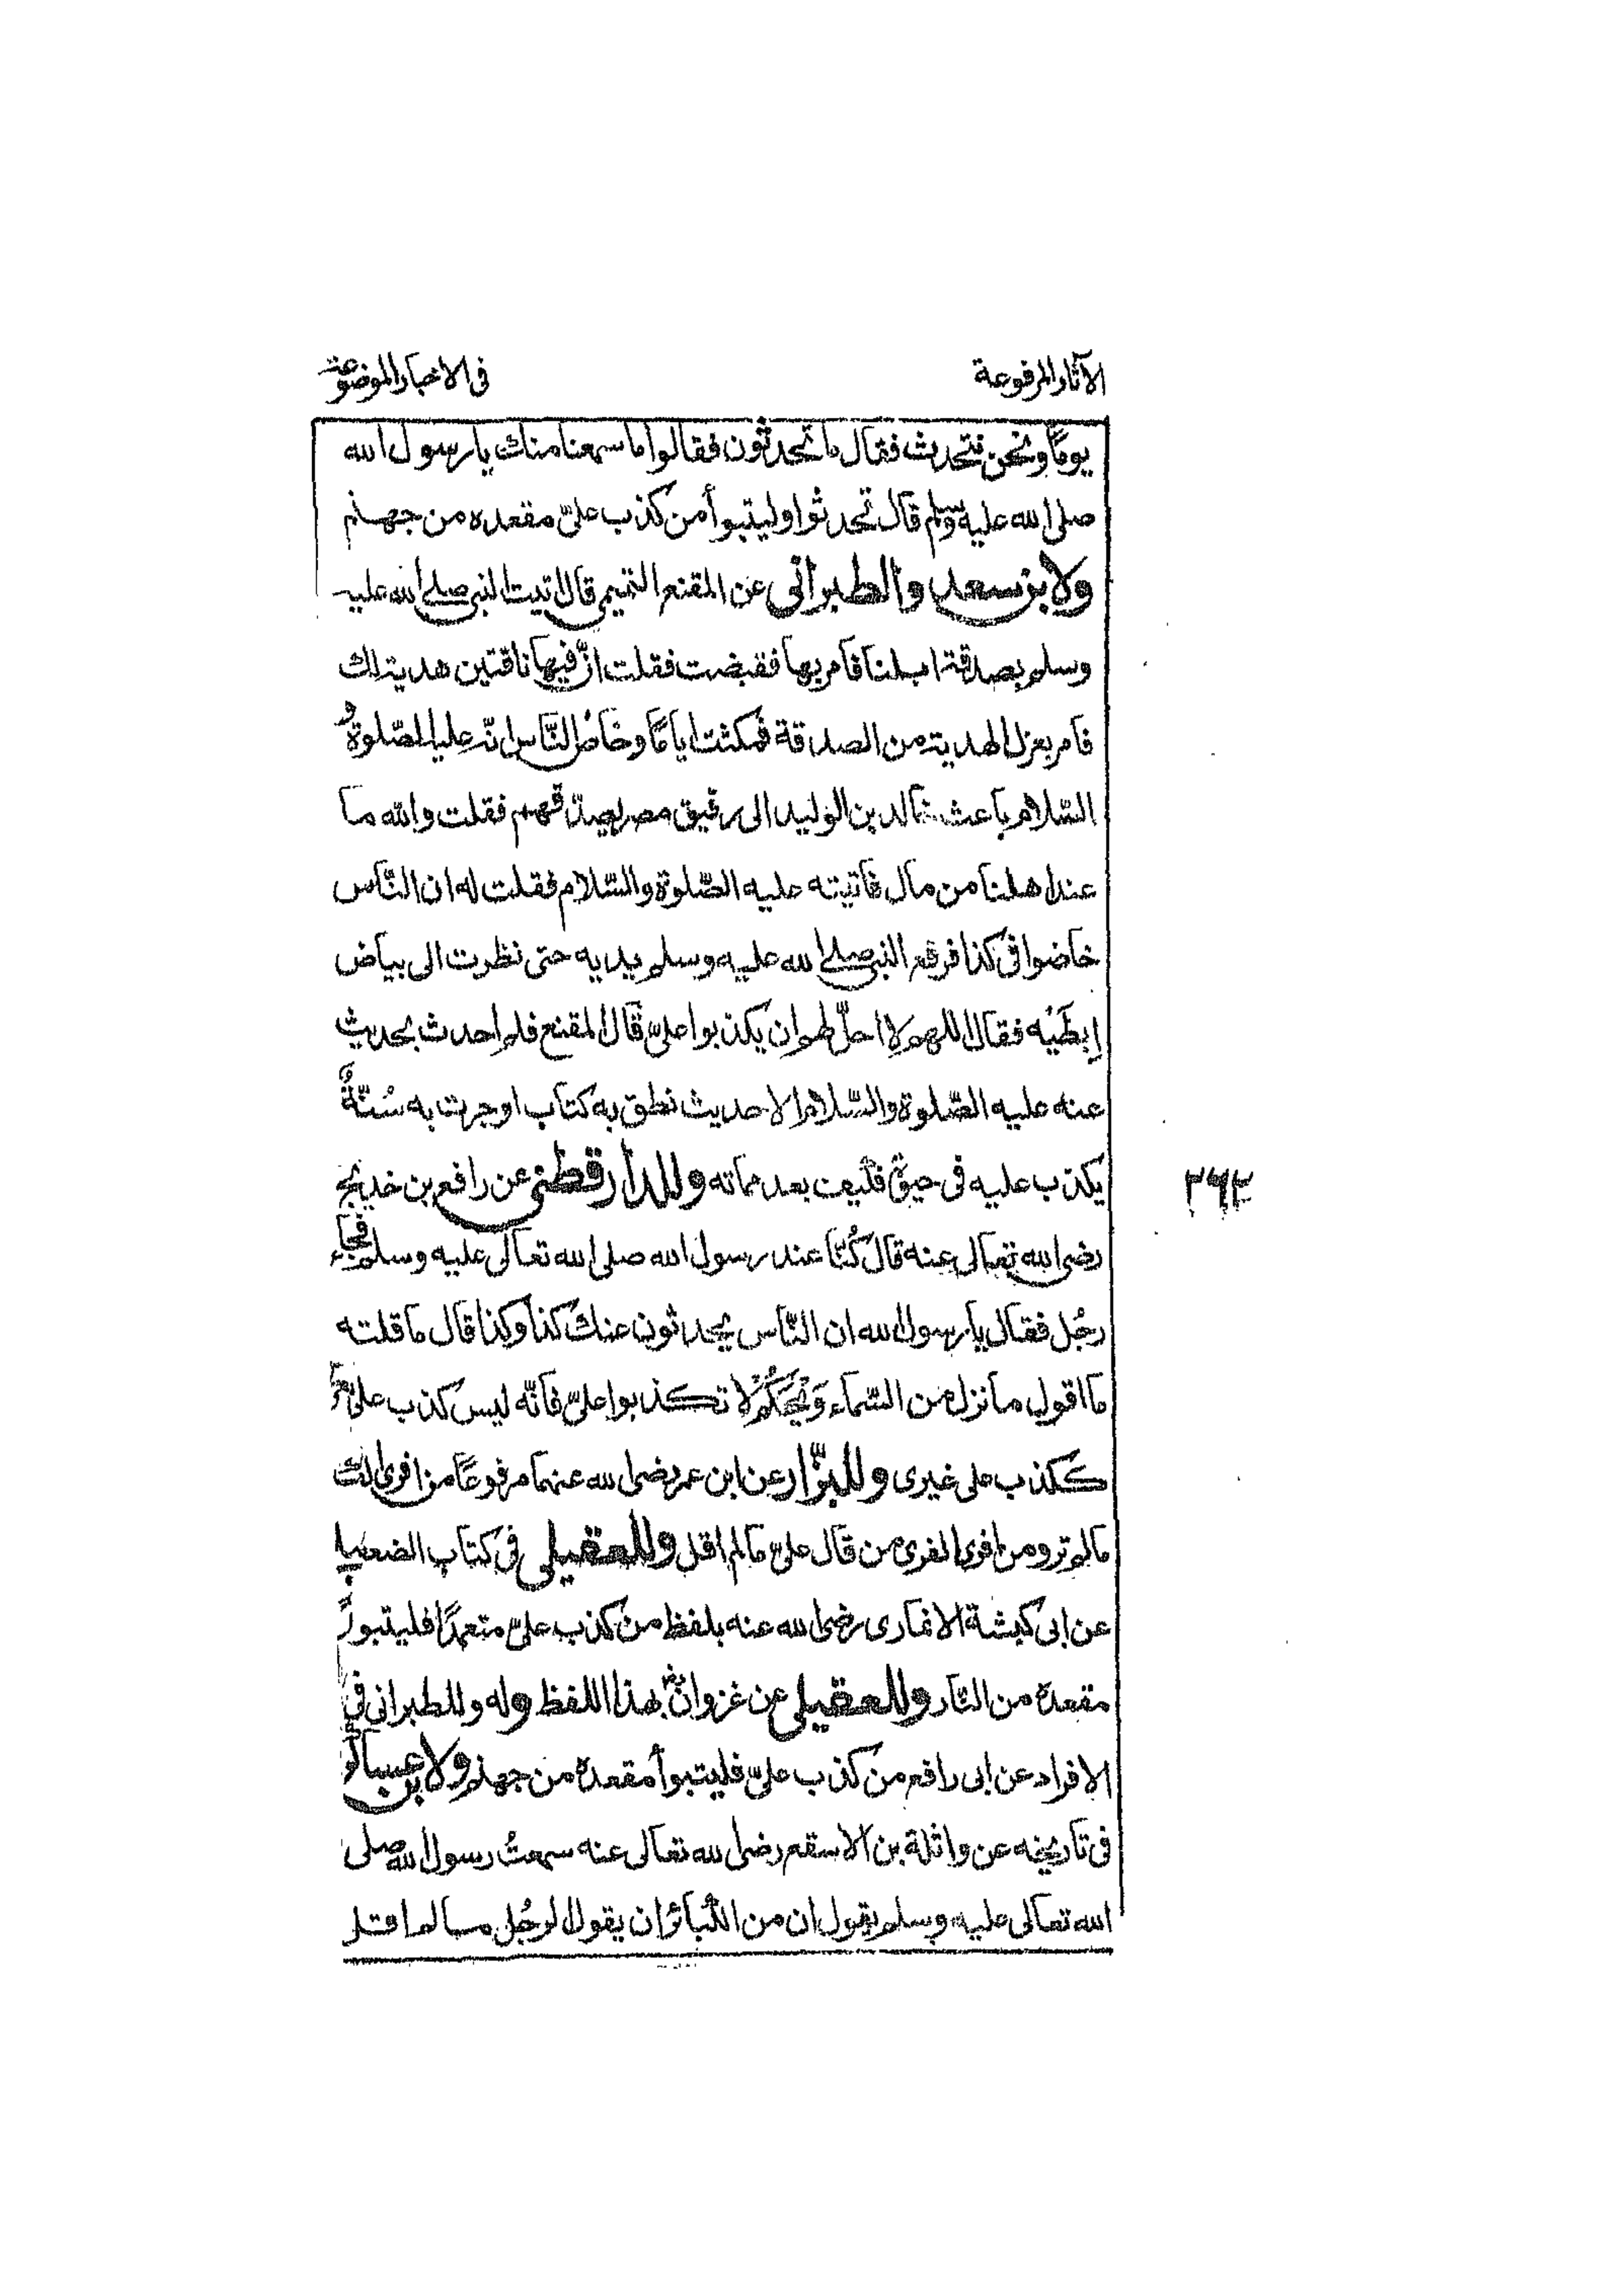 الآثار المرفوعة
فى الاخبار الموضوعة
يومًا ونحن نتحدث فقال ما تحدثون فقالوا ما سمعنا منك يا رسول الله
صلى الله عليه وسلم قال تحدثوا وليتبوأ من كذب علىّ مقعده من جهنم
ولابن سعد والطبرانى عن المقنع التميمى قال اتيت النبى صلى الله عليه
وسلم بصدقة ابلنا فامر بها فقبضت فقلت انّ فيها ناقتين هدية لك
فامر بعزل الهدية من الصدقة فمكثت ايامًا وخاض النّاس انّه عليه الصّلوة و
السّلام باعث خالد بن الوليد الى رقيق مصر يصدّقهم فقلت والله ما
عند اهلنا من مال فاتيته عليه الصّلوة والسّلام فقلت له ان النّاس
خاضوا فى كذا فرفع النبى صلى الله عليه وسلم يديه حتى نظرت الى بياض
إبطَيْه فقال اللهم لا احلّ لهم ان يكذبوا علىّ قال المقنع فلم احدث بحديث
عنه عليه الصّلوة والسّلام الا حديث نطق به كتاب او جرت به سُنّةٌ
يكذب عليه فى حيوٰته فكيف بعد مماته وللدارقطنى عن رافع بن خديج
رضى الله تعالى عنه قال كُنّا عند رسول الله صلى الله تعالى عليه وسلم فجاء
رجُل فقال يا رسول الله ان النّاس يحدثون عنك كذا وكذا قال ما قلته
ما اقول ما نزل من السّماء وَيْحَكُمْ لا تكذبوا علىّ فانّه ليس كذب علىّ
ككذب على غيرى وللبزّار عن ابن عمر رضى الله عنهما مرفوعًا من افرى الفرى
مالم ترو ومن افرى الفرى من قال علىّ مالم اقل وللعقيلى فى كتاب الضعفا
عن ابى كبشة الانمارى رضى الله عنه بلفظ من كذب علىّ متعمدًا فليتبوأ
مقعده من النّار وللعقيلى عن غزوان بهذا اللفظ وله وللطبرانى فى
الافراد عن ابى رافع من كذب علىّ فليتبوأ مقعده من جهنم ولابن عساكر
فى تاريخه عن واثلة بن الاسقع رضى الله تعالى عنه سمعتُ رسول الله صلى
الله تعالى عليه وسلم يقول ان من الكبائر ان يقول الرجُل مالم اقل
٢٦٢